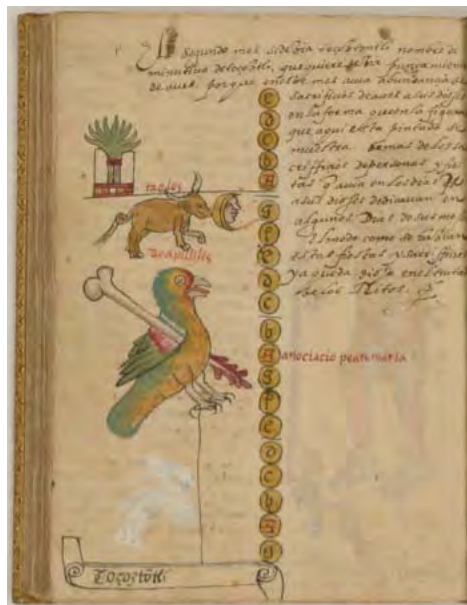 El Segundo mes se dezia toçoztontli nombre di
minutiuo de toçoztli, que quiere dezir punçamiento
de aues, porque en este mes auia abundancia de
sacrificios de aues a sus dioses
en la forma que en la figura
que aqui esta pintada se
muestra. demas de los sa
crifficios de personas y fies
tas q auia en los dias q
a sus dioses dedicauan en
algunos Dias de sus meses
modo como se hazian
estas fiestas y sacrificios
ya queda dicho en el
de los Ritos.
e
d
c
b
A
g
f
e
d
c
b
A
g
f
e
d
c
b
A
g
de aprillis
anociacio peatemaria
Toçoztōtli